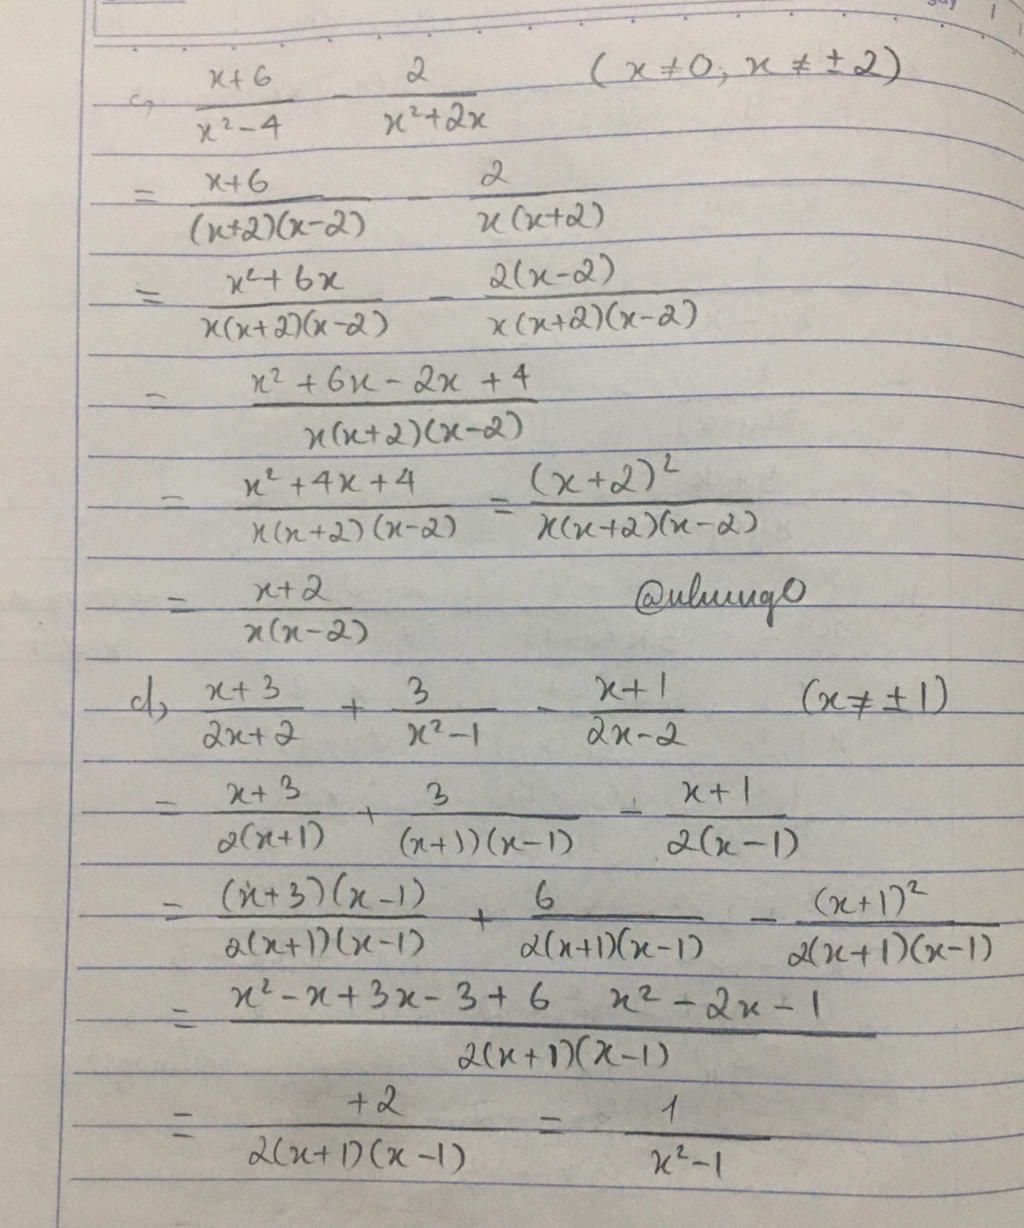 c, (x+6)/(x²-4) - 2/(x²+2x) (x≠0; x≠±2)
= (x+6)/((x+2)(x-2)) - 2/(x(x+2))
= (x²+6x)/(x(x+2)(x-2)) - 2(x-2)/(x(x+2)(x-2))
= (x²+6x-2x+4)/(x(x+2)(x-2))
= (x²+4x+4)/(x(x+2)(x-2)) = (x+2)²/(x(x+2)(x-2))
= (x+2)/(x(x-2))
d, (x+3)/(2x+2) + 3/(x²-1) - (x+1)/(2x-2) (x≠±1)
= (x+3)/(2(x+1)) + 3/((x+1)(x-1)) - (x+1)/(2(x-1))
= (x+3)(x-1)/(2(x+1)(x-1)) + 6/(2(x+1)(x-1)) - (x+1)²/(2(x+1)(x-1))
= (x²-x+3x-3+6 x²-2x-1)/(2(x+1)(x-1))
= +2/(2(x+1)(x-1)) = 1/(x²-1)